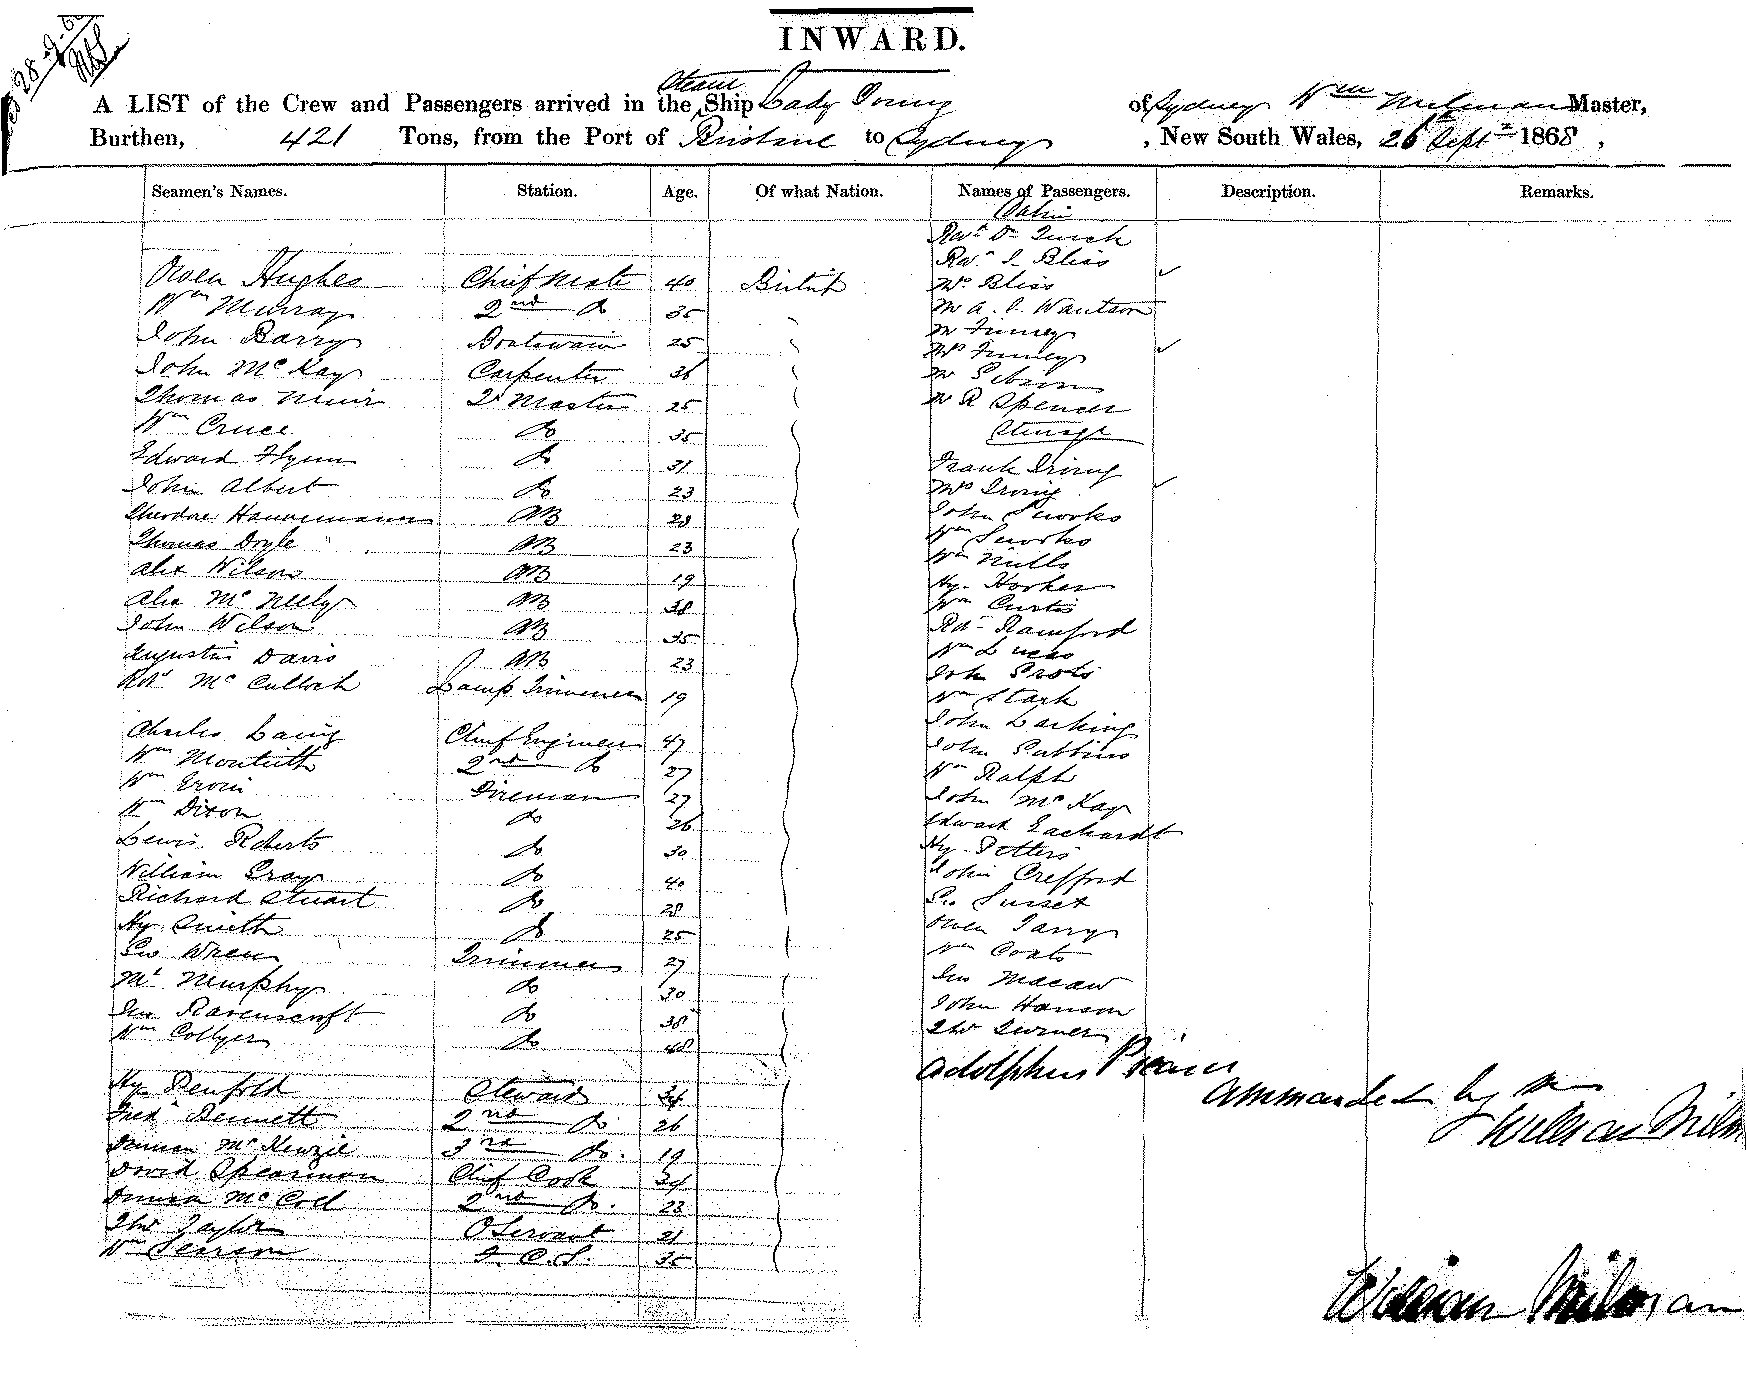 28-9-68
INWARD.
A LIST of the Crew and Passengers arrived in the Steam Ship Lady Young of Sydney Wm Milman Master,
Burthen, 421 Tons, from the Port of Brisbane to Sydney, New South Wales, 26 Sept 1868,
Seamen's Names. Station. Age. Of what Nation. Names of Passengers. Description. Remarks.
Cabin
Owen Hughes Chief Mate 40 British
Wm Murray 2nd Do 35
John Barry Boatswain 25
John McKay Carpenter 36
Thomas Muir Qr Master 25
Wm Cruce Do 35
Edward Flynn Do 31
John Albert Do 23
Theodore Hannemann AB 28
Thomas Doyle AB 23
Alex Wilson AB 19
Alex McNeely AB 38
John Wilson AB 35
Augustus Davis AB 23
Robt McCulloch Lamp Trimmer 19
Charles Laing Chief Engineer 47
Wm Monteith 2nd Do 27
Wm Ervin Fireman 27
Wm Dixon Do 26
Lewis Roberts Do 30
William Gray Do 40
Richard Stuart Do 28
Hy Smith Do 25
Geo Wren Trimmer 27
Ml Murphy Do 30
Jno Ravenscroft Do 38
Wm Collyer Do 48
Hy Penfold Steward 34
Fred Bennett 2nd Do 26
Duncan McKenzie 3rd Do. 19
David Spearman Chief Cook 34
Duncan McColl 2nd Do. 23
Thos Taylor O Servant 21
Wm Pearson F. C. S. 35
Revd Dr Quick
Rev J Bliss
Mrs Bliss
Mr A. J. Wautson
Mr Finney
Mrs Finney
Mr Gibson
Mr R Spencer
Steerage
Frank Irving
Mrs Irving
John Sworks
Wm Sworks
Wm Mills
Hy. Hooker
Wm Curtis
Robt Ramford
Wm Lucas
John
Wm Stark
John Larking
John Gubbins
Wm Ralph
John McKay
Edward Eachardt
Hy Potters
John Crefford
Geo Susset
Owen Tarry
Wm Coats
Jno Macaw
John Hanson
Thos Turner
Adolphus
Ammended by me
William Milman
William Milman